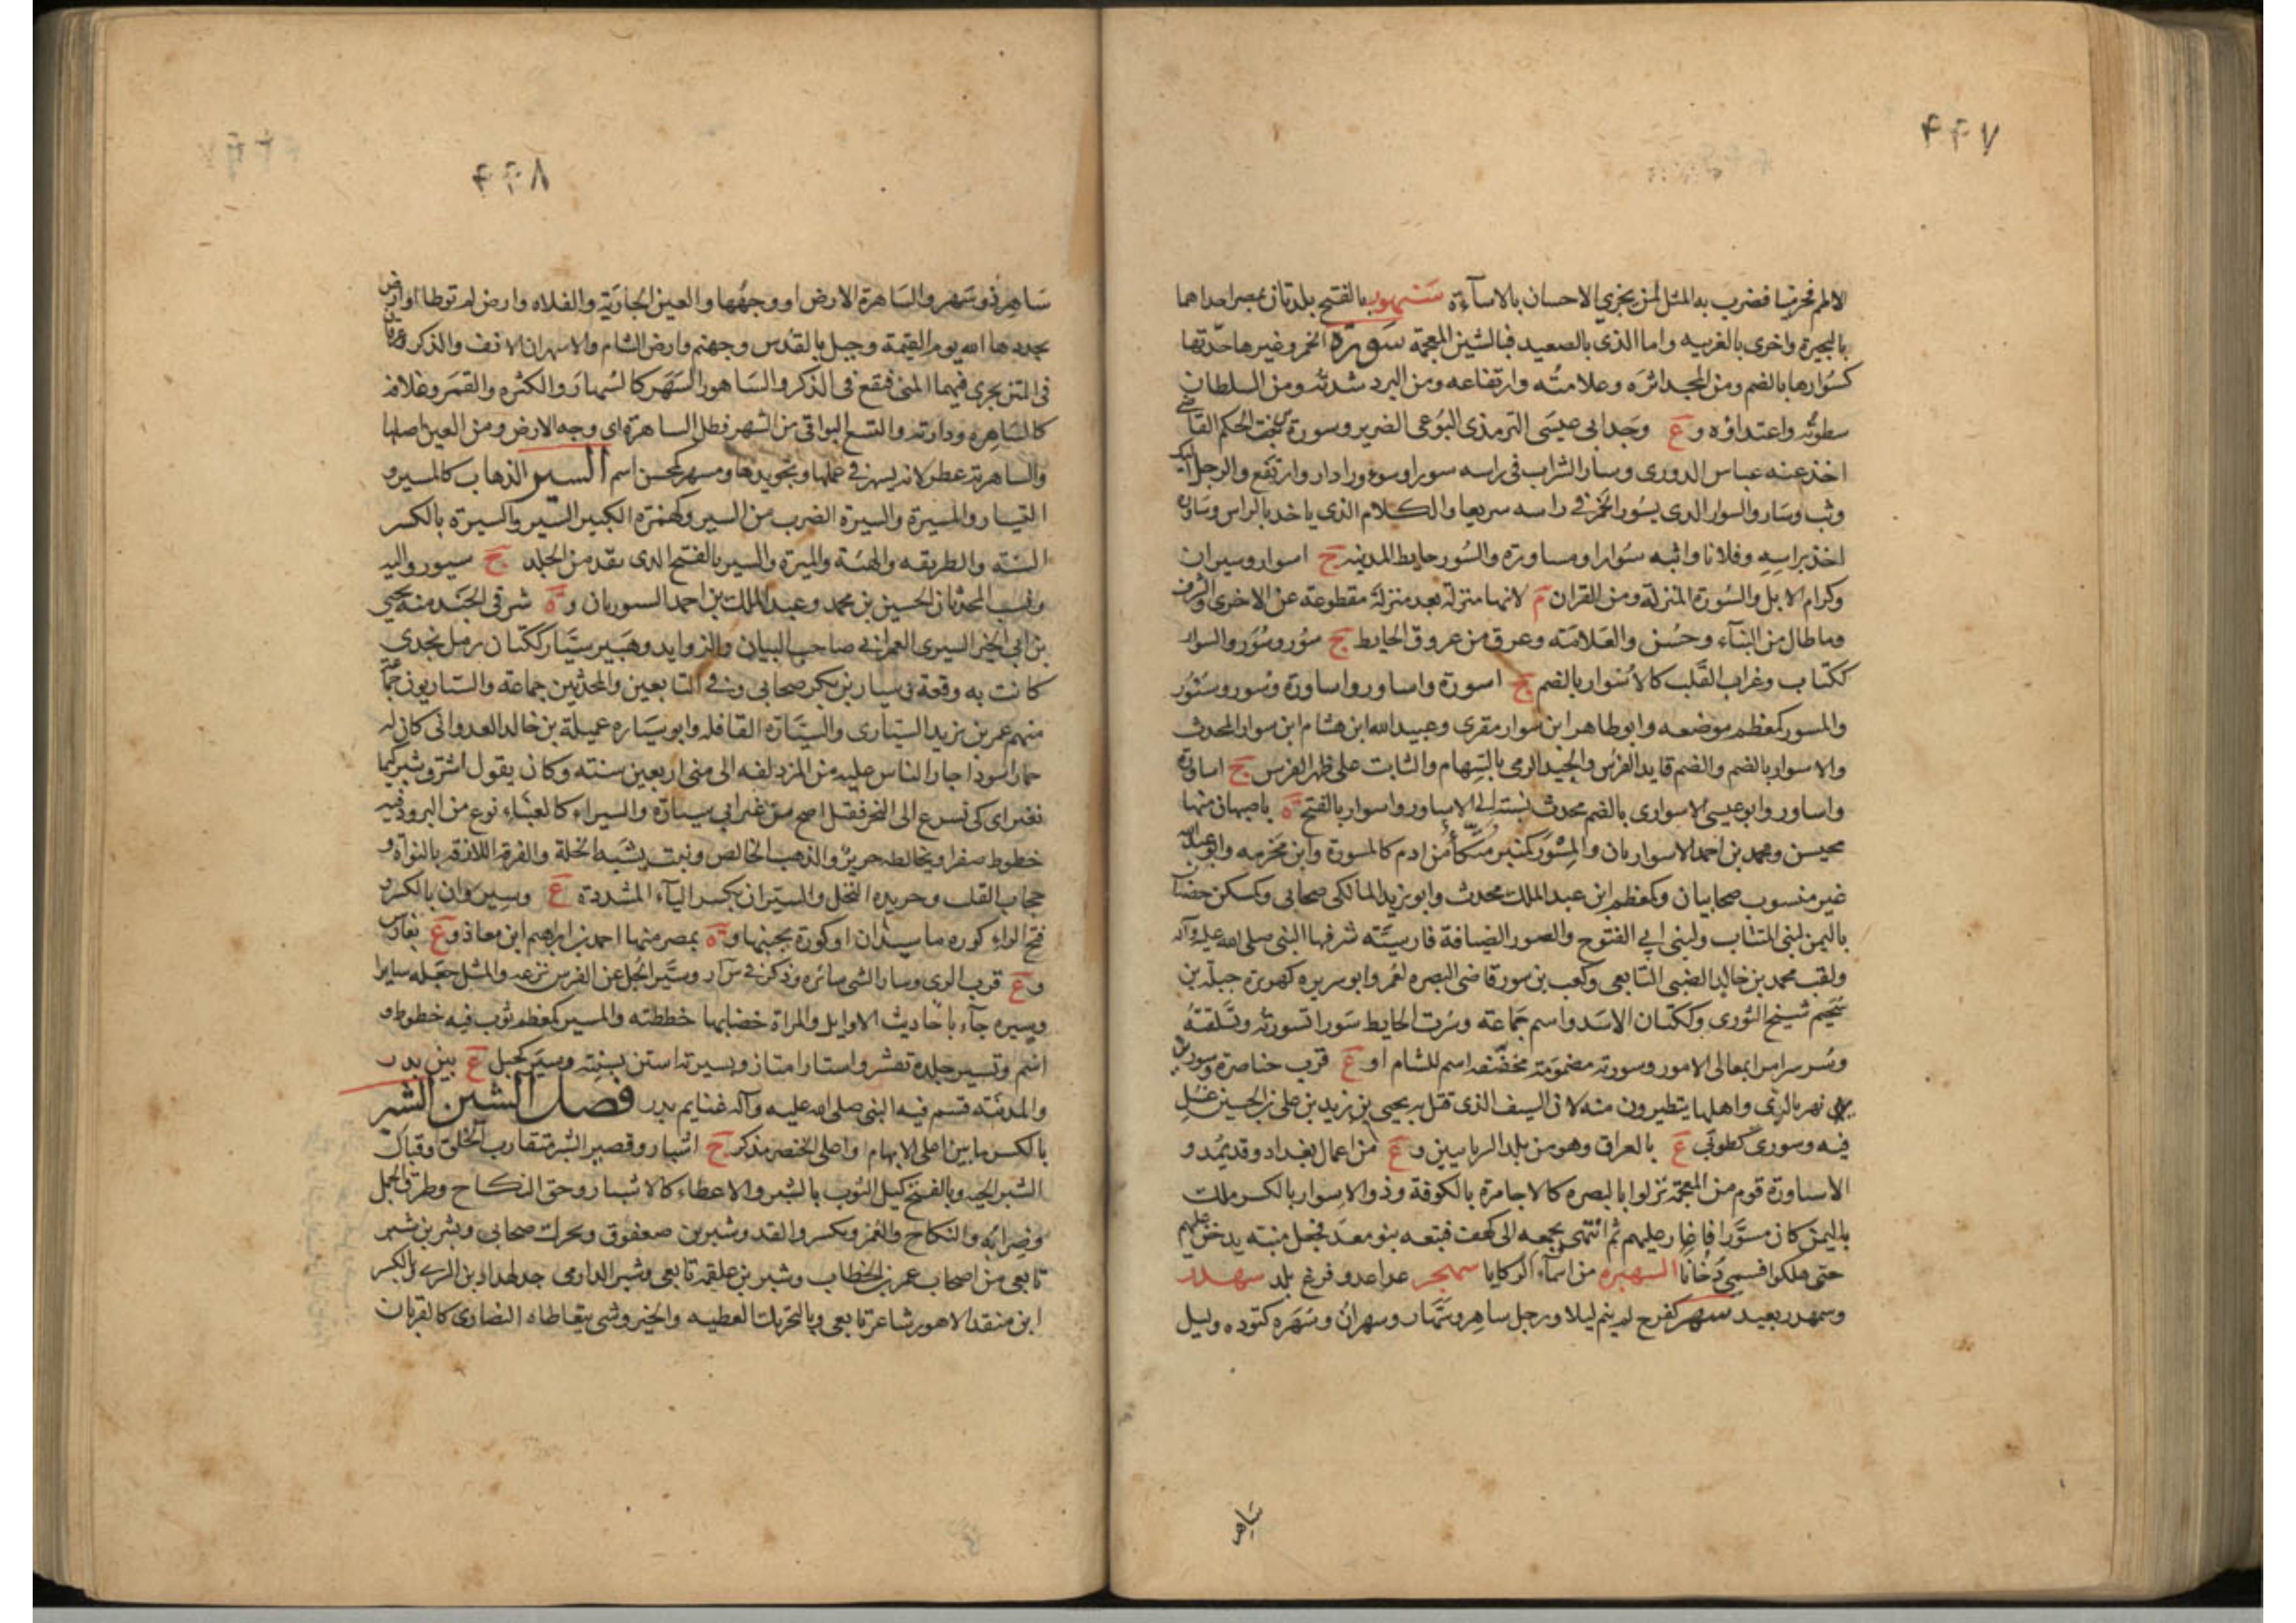 ۴۴۷
الالم فخر ميتا فضرب به المثل لمن يجزي الاحسان بالاساءة سنهور بالفتح بلدتان بمصر احداهما
بالبحيرة واخرى بالغربيه واما الذى بالصعيد فبالشين المعجمة سورة الخمر وغيرها حدتها
كسوارها بالضم ومن المجد اثره وعلامته وارتفاعه ومن البرد شدته ومن السلطان
سطوته واعتداؤه و ع وجد ابى عيسى الترمذى البوغى الضرير وسورة بنت الحكم القاضي
اخذ عنه عباس الدورى وسار الشراب فى راسه سورا وسوورا دار وارتفع والرجل اليك
وثب وسار والسوار الذى يسور الخمر في راسه سريعا والكلام الذى ياخذ بالراس وساوره
اخذ براسه وفلانا واثبه سوارا ومساورة والسور حايط المدينه ج اسوار وسيران
وكرام الابل والسورة المنزلة ومن القران م لانها منزلة بعد منزلة مقطوعة عن الاخرى والشرف
وما طال من البناء وحسن والعلامة وعرق من عروق الحايط ج سور وسور والسوار
ككتاب وغراب القلب كالاسوار بالضم ج اسورة واساور واساورة وسور وسوور
والمسور كمعظم موضعه وابو طاهر ابن سوار مقرى وعبيد الله ابن هشام ابن سوار المحدث
والاسوار بالضم والضم قايد الفرس والجيد الرمى بالسهام والثابت على ظهر الفرس ج اساورة
واساور وابو عيسى الاسوارى بالضم محدث نسبته الى الاساور واسوار بالفتح ة باصبهان منها
محيسن ومحمد بن احمد الاسواريان والمسور كمنبر متكأ من ادم كالمسورة وابن مخرمه وابو عبدالله
غير منسوب صحابيان وكمعظم ابن عبد الملك محدث وابو يزيد المالكى صحابى وكسكن حضنان
باليمن لبنى المنتاب ولبنى ابي الفتوح والصور الضيافة فارسيته شرفها النبى صلى الله عليه وآله
ولقب محمد بن خالد الضبى التابعى وكعب بن سور قاضى البصره لعمر وابو سريره كهريرة جبلة بن
سحيم شيخ الثورى وككتان الاسد واسم جماعة وسرت الحايط سورا تسورته وتسلقته
وسر سرامر بمعالى الامور وسورته مضمومة مخففه اسم للشام او ع قرب خناصرة وسورين
نهر بالرى واهلها يتطيرون منه لان السيف الذى قتل به يحيى بن زيد بن على بن الحسين غسل
فيه وسورى كطوبى ع بالعراق وهو من بلد السريانيين و ع من اعمال بغداد وقد يمد و
الاساورة قوم من العجم نزلوا بالبصره كالاحامرة بالكوفة وذو الاسوار بالكسر ملك
باليمن كان مسورا فاغار عليهم ثم انتهى بجمعه الى كهف فتبعه بنو معد فجعل منبه يدخن عليهم
حتى هلكوا فسمى دخانا السهبره من اسماء الركايا سهجر عدا عدو فزع بلد سهدر
وسمهدر بعيد سهر كفرح لم ينم ليلا ورجل ساهر وسهار وسهران وسهره كتوده وليل
ساهر
۴۴۸
ساهر ذو سهر والساهرة الارض او وجهها والعين الجارية والفلاه وارض لم توطا او ارض
يجددها الله يوم القيمة وجبل بالقدس وجهنم وارض الشام والاسهران الانف والذكر وعرقان
فى المتن يجرى فيهما المنى فيقع فى الذكر والساهور السهر كالسهار والكثره والقمر وغلافه
كالساهره ودارته والتسع البواقى من الشهر وظل الساهرة اى وجه الارض ومن العين اصلها
والساهرية عطر لانه يسهر في عملها وتجويدها ومسهر كمحسن اسم السير الذهاب كالمسير و
التسيار والمسيرة والسيرة الضرب من السير وكهمزة الكثير السير والسيرة بالكسر
السنة والطريقه والهيئة والميرة والسير بالفتح الذى يقد من الجلد ج سيور واليه
ونسب المحدثان الحسين بن محمد وعبد الملك بن احمد السيوريان و ة شرقى الجند منه يحيى
بن ابى الخير السيرى العمرانى صاحب البيان والزوايد وهبير سيار ككتان رمل نجدى
كانت به وقعة وسيار بن بكر صحابى وفى التابعين والمحدثين جماعة والسياريون جماعة
منهم عمر بن يزيد السيارى والسيارة القافله وابو سياره عميلة بن خالد العدوانى كان له
حمار اسود اجاز الناس عليه من المزدلفه الى منى اربعين سنة وكان يقول اشرق ثبير كيما
نغير اى كى نسرع الى النحر فقيل اصح من عير ابى سيارة والسيراء كالعنباء نوع من البرود فيه
خطوط صفر او يخالطه حرير والذهب الخالص ونبت يشبه الخلة والقرفة اللازقه بالنواة و
حجاب القلب وجريده النخل والسيران بكسر الياء المشددة ع وسيروان بالكسر و
فتح الراء كوره ماسبذان او كورة بجنبها و ة بمصر منها احمد بن ابراهيم ابن معاذ و ع بفارس
و ع قرب الرى وسار الشى سائره وذكر فى س ار وسير الجل عن الفرس نزعه والمثل جعله سايرا
وسيره جاء باحاديث الاوايل والمراة خضابها خططته والمسير كمعظم ثوب فيه خطوط و
اسم وتسير جلده تقشر واستار امتاز وبسيرته استن بسنته وسير كجبل ع بين بدر
والمدينة قسم فيه النبى صلى الله عليه وآله غنايم بدر فصل الشين الشبر
بالكسر ما بين اعلى الابهام واعلى الخنصر مذكر ج اشبار وقصير الشبر متقارب الخلق وقبال
الشبر الحيه وبالفتح كيل الثوب بالشبر والاعطاء كالاشبار وحق النكاح وطرق الجمل
وضرابه والنكاح والعمر ويكسر والقد وشبر بن صعفوق ويحرك صحابى وبشر بن شبر
تابعى من اصحاب عمر بن الخطاب وشبر بن علقمة تابعى وشبر الدارمى جد لهناد بن السرى وبالكسر
ابن منقذ الاعور شاعر تابعى وبالتحريك العطيه والخير وشى يتعاطاه النصارى كالقربان